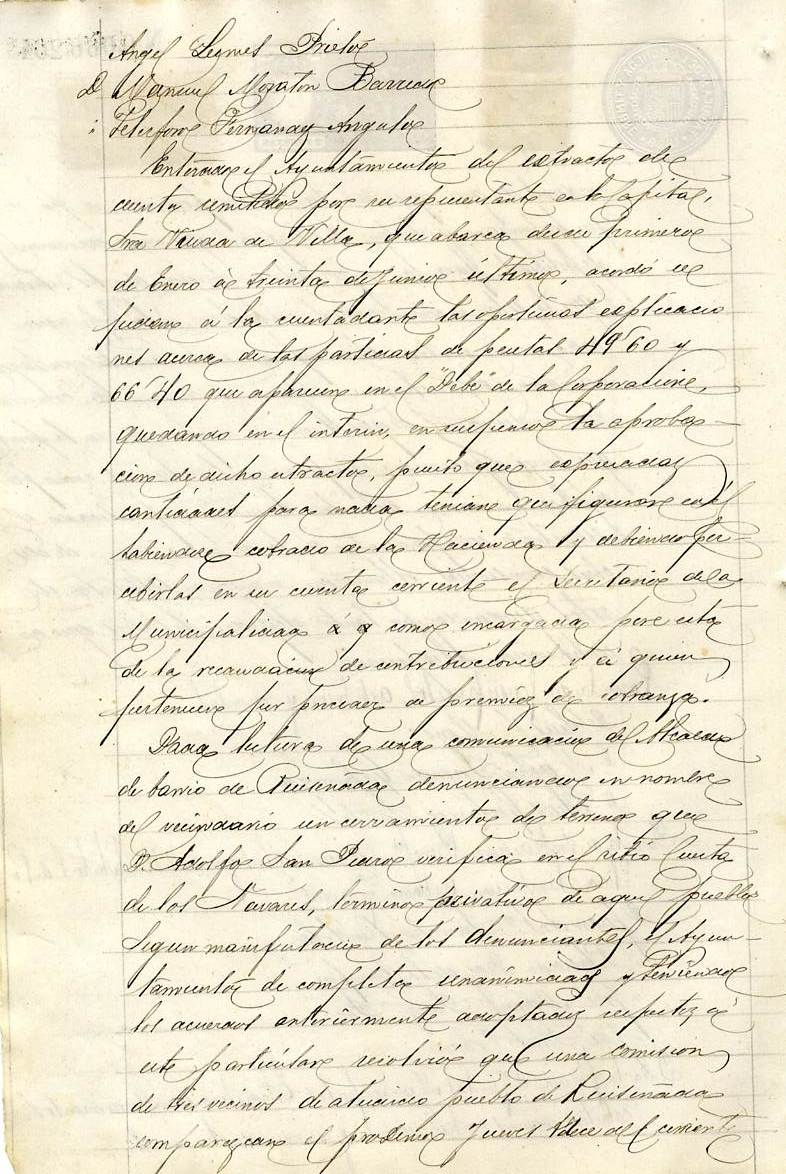 Angel Prieto
D Manuel Moraton Barreda
Telesforo Fernandz Angulo
Enterado el Ayuntamiento del extracto de
cuenta remitido por su representante en la Capital,
Sra Viuda de Villa, que abarca desde primero
de Enero á treinta de Junio último, acordó se
pidiera á la cuentadante las oportunas explicacio
nes acerca de las partidas de pesetas 49'60 y
66'40 que aparecen en el "Debe" de la Corporacion,
quedando en el interin, en suspenso la aproba-
cion de dicho extracto, puesto que expresadas
cantidades para nada tenian que figurar en él
habiendose cobrado de la Hacienda y debiendo per-
cibirlas en su cuenta corriente el Secretario de la
Municipalidad como encargado por esta
de la recaudacion de contribuciones y á quien
pertenecen por proceder de premio de cobranza.
Dada lectura de una comunicacion del Alcalde
de barrio de Ruiseñada denunciando en nombre
del vecindario un cerramiento de terreno que
D. Adolfo San Pedro verifica en el sitio Cuesta
de los Tavares, termino privativo de aquel pueblo
segun manifestacion de los denunciantes, el Ayun-
tamiento de completa unanimidad y teniendo
los acuerdos anteriormente adoptados respecto á
este particular resolvió que una comision
de tres vecinos de aludido pueblo de Ruiseñada
comparezcan el proximo Jueves doce del corriente